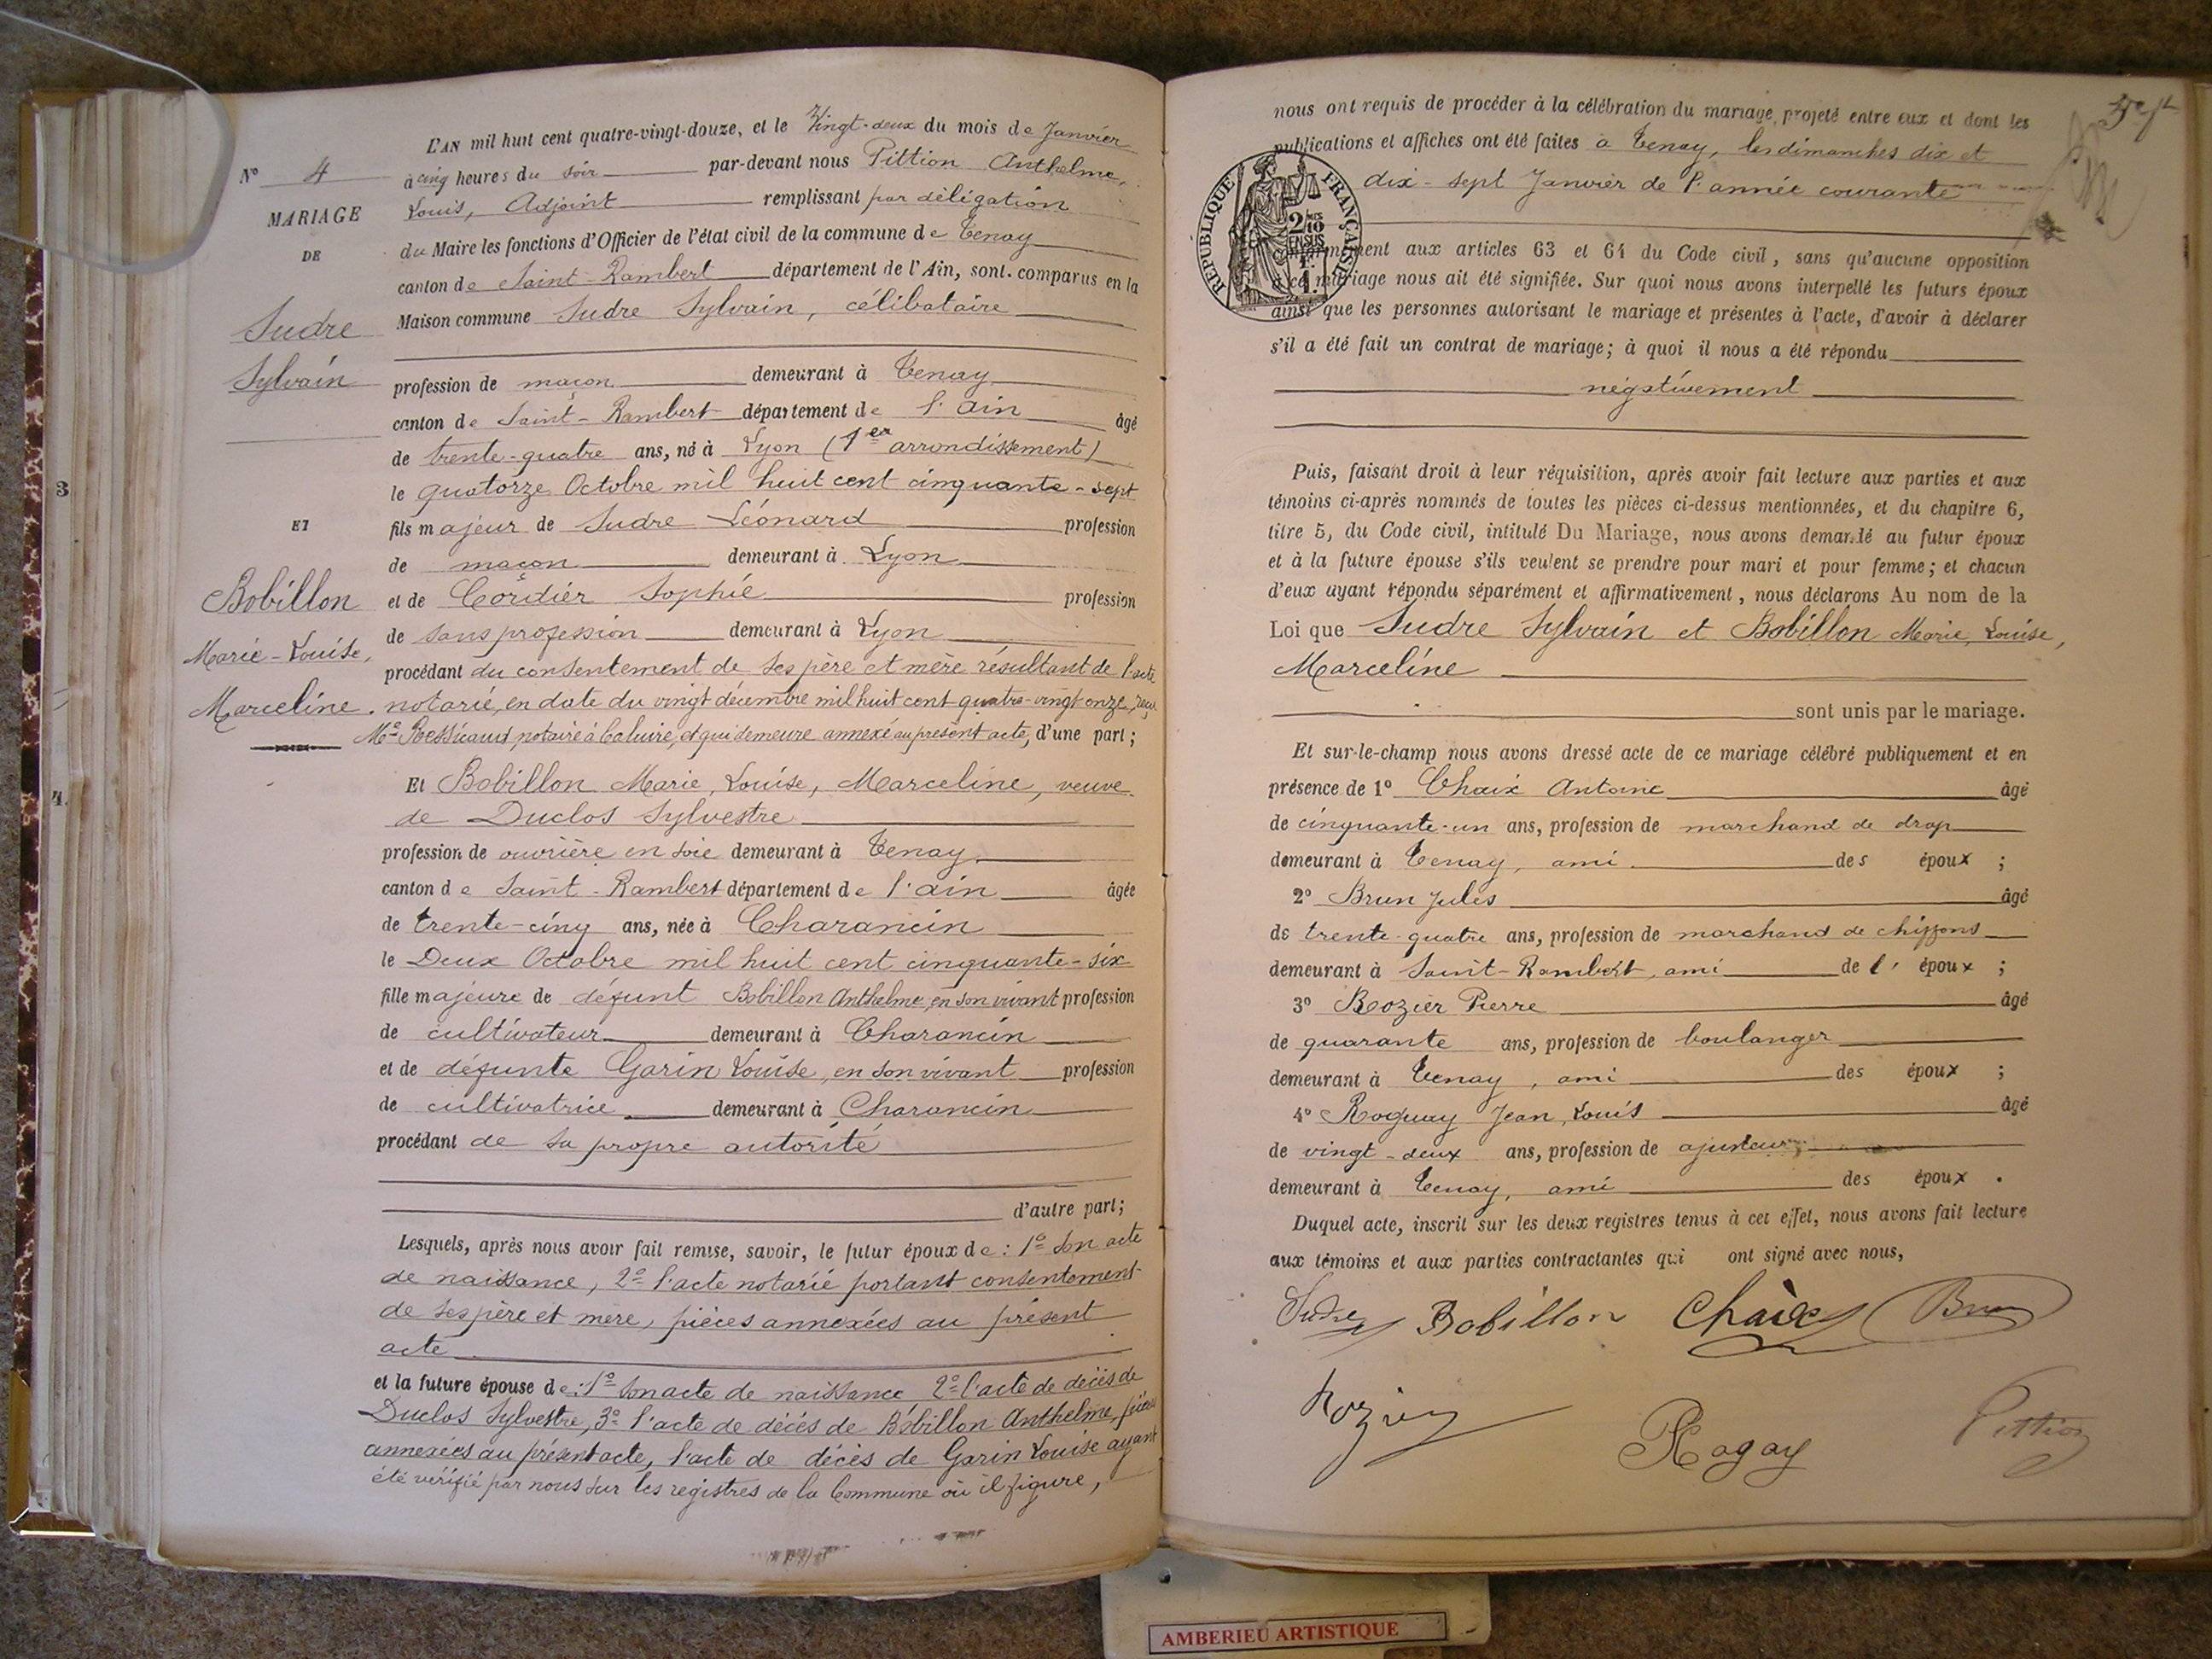 L'AN mil huit cent quatre-vingt-douze, et le Vingt-deux du mois de Janvier
à cinq heures du soir par-devant nous Pittion Anthelme,
Louis, Adjoint remplissant par délégation
du Maire les fonctions d'Officier de l'état civil de la commune de Tenay
canton de Saint-Rambert département de l'Ain, sont comparus en la
Maison commune Sudre Sylvain, célibataire
profession de maçon demeurant à Tenay
canton de Saint-Rambert département de l'Ain âgé
de trente-quatre ans, né à Lyon (1er arrondissement)
le quatorze Octobre mil huit cent cinquante-sept
fils majeur de Sudre Léonard profession
de maçon demeurant à Lyon
et de Cordier Sophie profession
de sans profession demeurant à Lyon
procédant du consentement de ses père et mère résultant de l'acte
notarié, en date du vingt décembre mil huit cent quatre-vingt onze, reçu
Me notaire à Caluire, et qui demeure annexé au présent acte, d'une part;
N° 4
MARIAGE
DE
Sudre
Sylvain
ET
Bobillon
Marie-Louise,
Marceline.
3
4.
Et Bobillon Marie, Louise, Marceline, veuve
de Duclos Sylvestre
profession de ouvrière en soie demeurant à Tenay
canton de Saint-Rambert département de l'Ain âgée
de trente-cinq ans, née à Charancin
le Deux Octobre mil huit cent cinquante-six
fille majeure de défunt Bobillon Anthelme, en son vivant profession
de cultivateur demeurant à Charancin
et de défunte Garin Louise, en son vivant profession
de cultivatrice demeurant à Charancin
procédant de sa propre autorité
d'autre part;
Lesquels, après nous avoir fait remise, savoir, le futur époux de : 1° Son acte
de naissance, 2° l'acte notarié portant consentement
de ses père et mère, pièces annexées au présent
acte
et la future épouse de : 1° Son acte de naissance 2° l'acte de décès de
Duclos Sylvestre, 3° l'acte de décès de Bobillon Anthelme, pièces
annexées au présent acte, l'acte de décès de Garin Louise ayant
été vérifié par nous sur les registres de la Commune où il figure,
nous ont requis de procéder à la célébration du mariage projeté entre eux et dont les
publications et affiches ont été faites à Tenay, les dimanches dix et
dix-sept Janvier de l'année courante
RÉPUBLIQUE FRANÇAISE
2/10
EN SUS
1 F.
conformément aux articles 63 et 64 du Code civil, sans qu'aucune opposition
à ce mariage nous ait été signifiée. Sur quoi nous avons interpellé les futurs époux
ainsi que les personnes autorisant le mariage et présentes à l'acte, d'avoir à déclarer
s'il a été fait un contrat de mariage; à quoi il nous a été répondu
négativement
Puis, faisant droit à leur réquisition, après avoir fait lecture aux parties et aux
témoins ci-après nommés de toutes les pièces ci-dessus mentionnées, et du chapitre 6,
titre 5, du Code civil, intitulé Du Mariage, nous avons demandé au futur époux
et à la future épouse s'ils veulent se prendre pour mari et pour femme; et chacun
d'eux ayant répondu séparément et affirmativement, nous déclarons Au nom de la
Loi que Sudre Sylvain et Bobillon Marie, Louise,
Marceline
sont unis par le mariage.
Et sur-le-champ nous avons dressé acte de ce mariage célébré publiquement et en
présence de 1° Chaix Antoine âgé
de cinquante-un ans, profession de marchand de drap
demeurant à Tenay, ami des époux ;
2° Brun Jules âgé
de trente-quatre ans, profession de marchand de chiffons
demeurant à Saint-Rambert, ami de l' époux ;
3° Rozier Pierre âgé
de quarante ans, profession de boulanger
demeurant à Tenay, ami des époux ;
4° Roguay Jean, Louis âgé
de vingt-deux ans, profession de ajusteur
demeurant à Tenay, ami des époux .
Duquel acte, inscrit sur les deux registres tenus à cet effet, nous avons fait lecture
aux témoins et aux parties contractantes qui ont signé avec nous,
Sudre Bobillon Chaix Brun
Rozier
Rogay
Pittion
AMBERIEU ARTISTIQUE